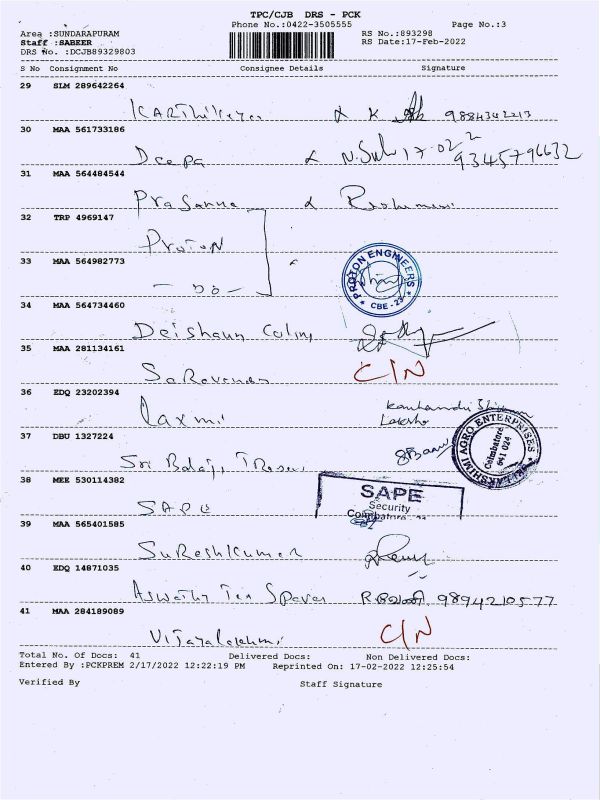 TPC/CJB DRS - PCK
Phone No.:0422-3505555 Page No.:3
Area :SUNDARAPURAM RS No.:893298
Staff :SABEER RS Date:17-Feb-2022
DRS No. :DCJB89329803
S No Consignment No Consignee Details Signature
29 SLM 289642264
KARThiKeyan K 9884342213
30 MAA 561733186
Deepa 17.02.2
9345796632
31 MAA 564484544
Prasanna
32 TRP 4969147
Proton
33 MAA 564982773
PROTON ENGINEERS
CBE - 23
- Do -
34 MAA 564734460
35 MAA 281134161
Saravanan C/N
36 EDQ 23202394
Laxmi
37 DBU 1327224
SRI LAKSHMI AGRO ENTERPRISES
Coimbatore
641 024
Sri Balaji
38 MEE 530114382
SAPE
Security
Coimbatore
SAPE
39 MAA 565401585
SureshKumar
40 EDQ 14871035
Aswathy Tex Spares 9894210577
41 MAA 284189089
Vijayalakshmi C/N
Total No. Of Docs: 41 Delivered Docs: Non Delivered Docs:
Entered By :PCKPREM 2/17/2022 12:22:19 PM Reprinted On: 17-02-2022 12:25:54
Verified By Staff Signature